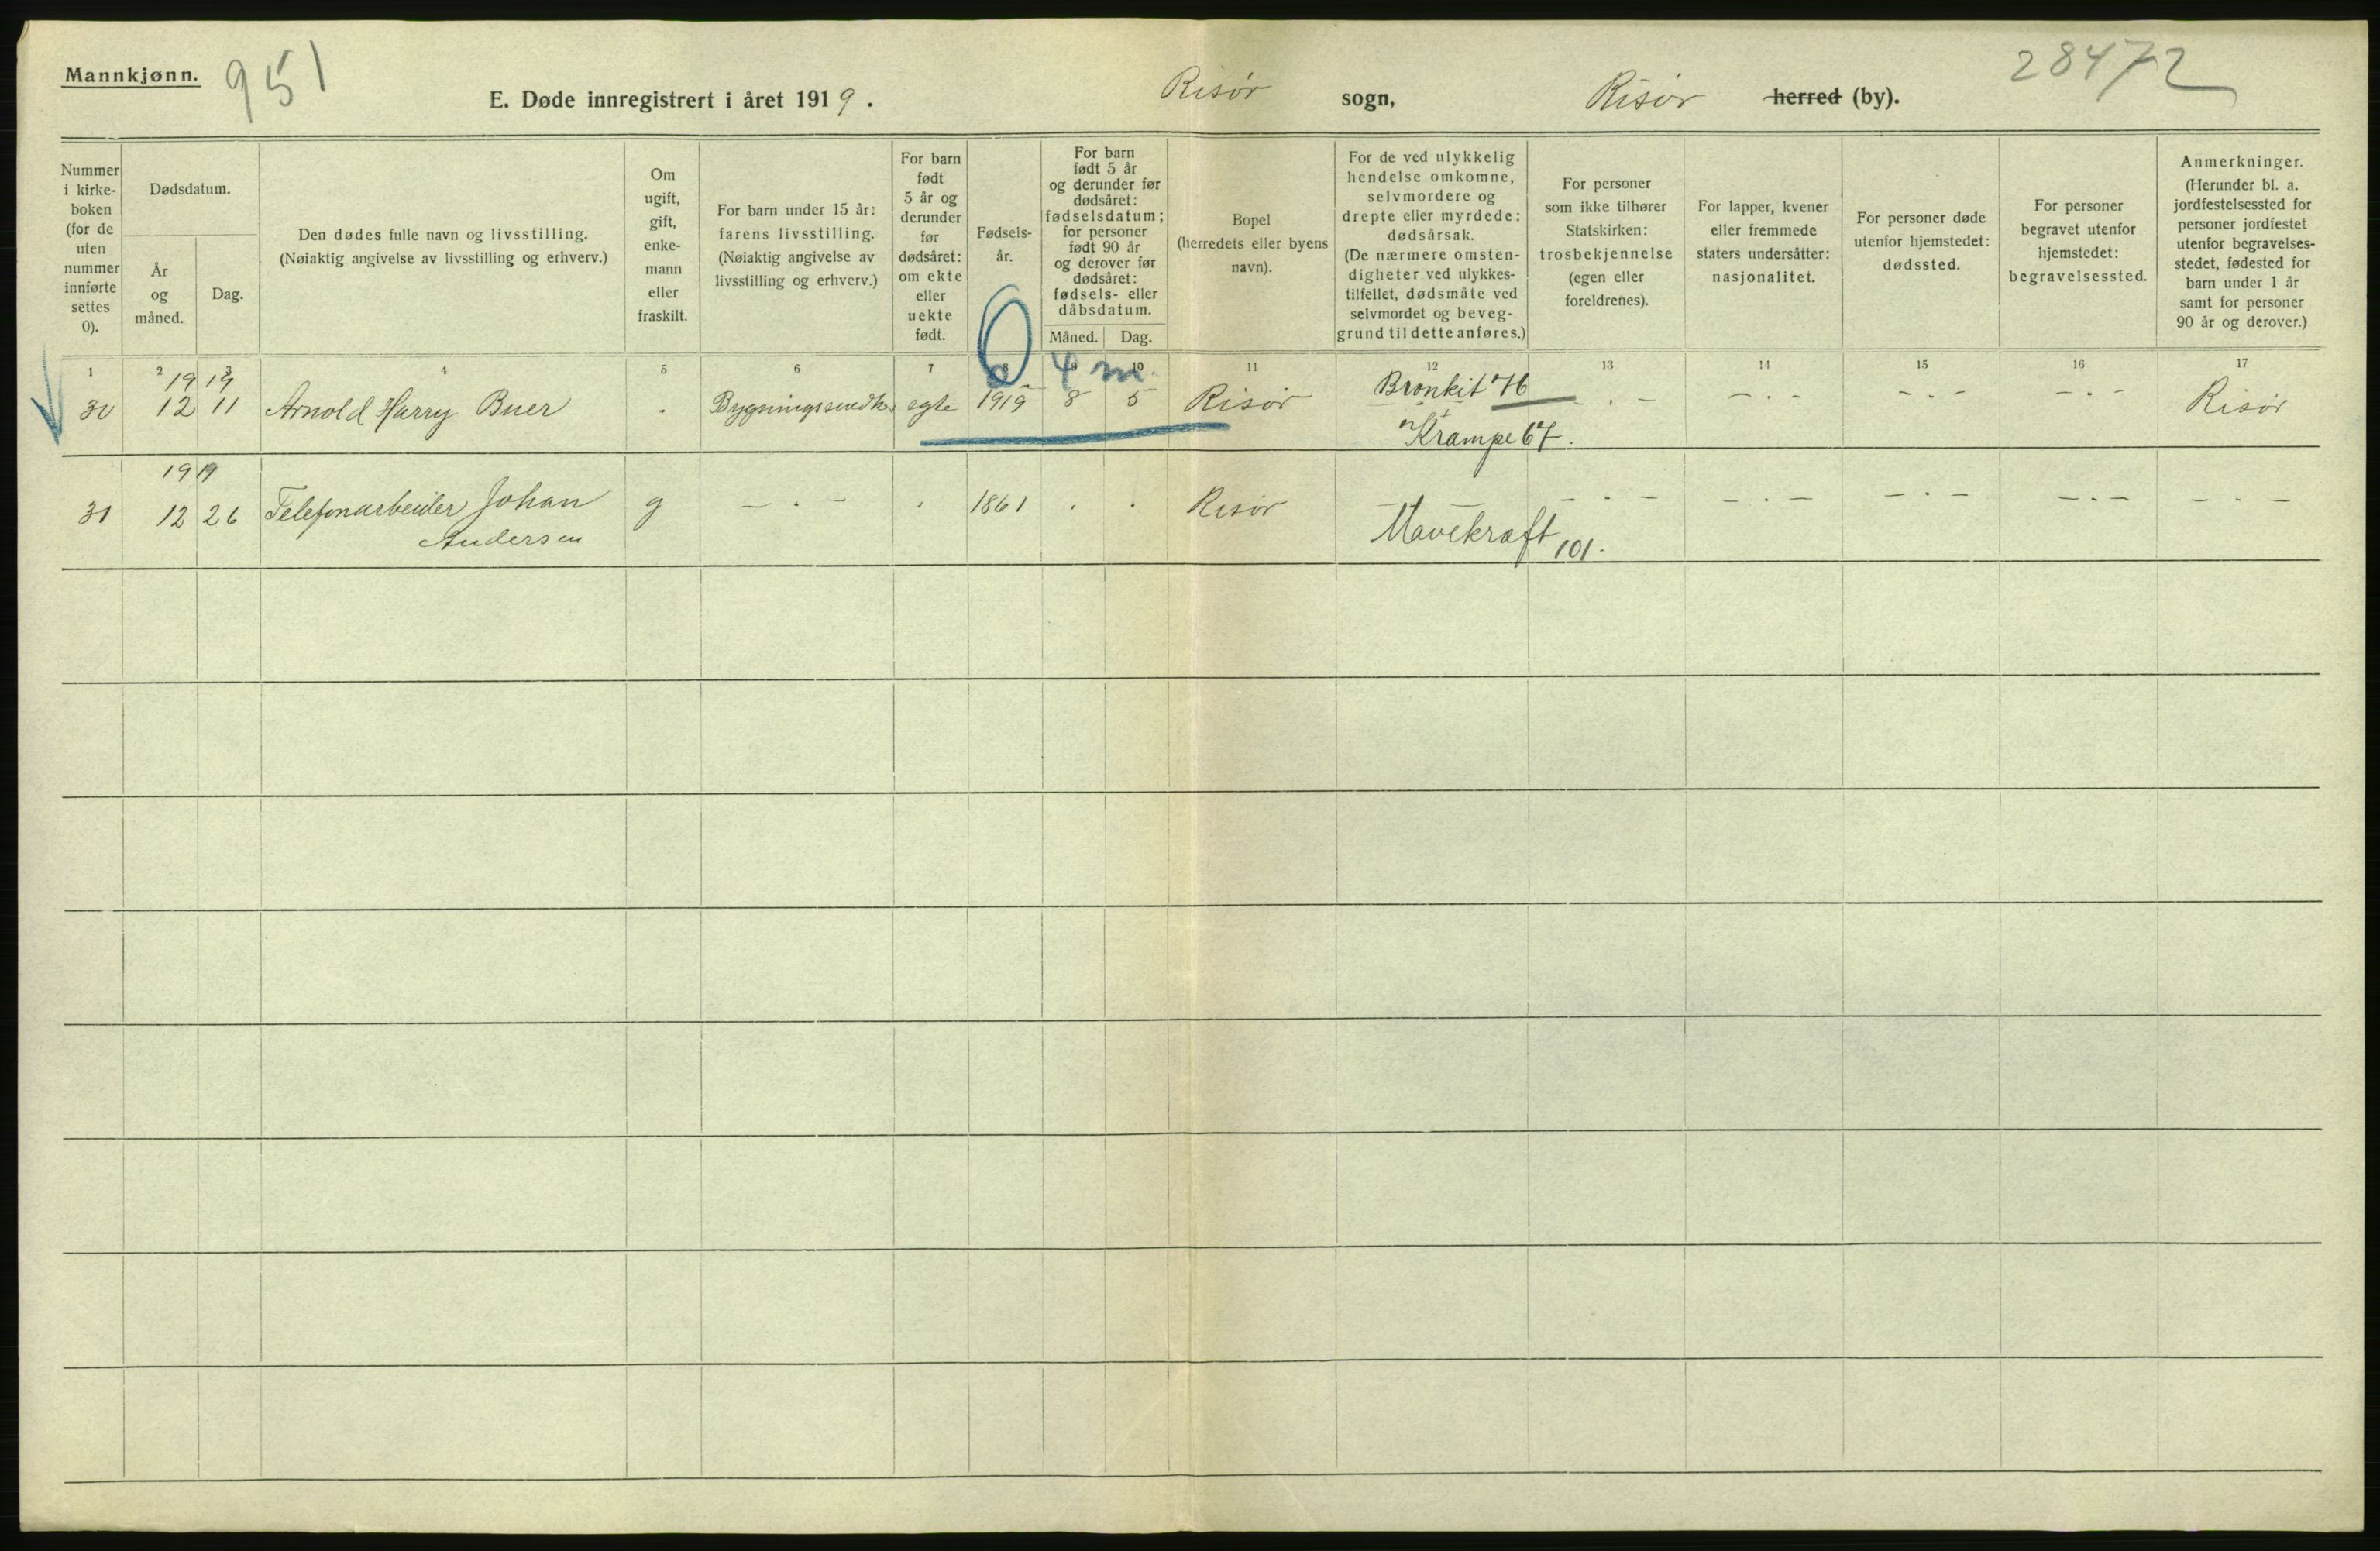 Mannkjønn.
951
E. Døde innregistrert i året 1919.
Risør sogn,
Risør herred (by).
28472
Nummer
i kirke-
boken
(for de
uten
nummer
innførte
settes
0).
Dødsdatum.
År
og
måned.
Dag.
Den dødes fulle navn og livsstilling.
(Nøiaktig angivelse av livsstilling og erhverv.)
Om
ugift,
gift,
enke-
mann
eller
fraskilt.
For barn under 15 år:
farens livsstilling.
(Nøiaktig angivelse av
livsstilling og erhverv.)
For barn
født
5 år og
derunder
før
dødsåret:
om ekte
eller
uekte
født.
Fødsels-
år.
For barn
født 5 år
og derunder før
dødsåret:
fødselsdatum;
for personer
født 90 år
og derover før
dødsåret:
fødsels- eller
dåbsdatum.
Måned. Dag.
Bopel
(herredets eller byens
navn).
For de ved ulykkelig
hendelse omkomne,
selvmordere og
drepte eller myrdede:
dødsårsak.
(De nærmere omsten-
digheter ved ulykkes-
tilfellet, dødsmåte ved
selvmordet og beveg-
grund til dette anføres.)
For personer
som ikke tilhører
Statskirken:
trosbekjennelse
(egen eller
foreldrenes).
For lapper, kvener
eller fremmede
staters undersåtter:
nasjonalitet.
For personer døde
utenfor hjemstedet:
dødssted.
For personer
begravet utenfor
hjemstedet:
begravelsessted.
Anmerkninger.
(Herunder bl. a.
jordfestelsessted for
personer jordfestet
utenfor begravelses-
stedet, fødested for
barn under 1 år
samt for personer
90 år og derover.)
1 2 3 4 5 6 7 8 9 10 11 12 13 14 15 16 17
0 4 m.
1919
30 12 11 Arnold Harry Buer . egte 1919 8 5 Risør Bronkit 76 - . - - . - - . - - . - Risør
+
Krampe 67.
1919
31 12 26 Telefonarbeider Johan g - . - . 1861 . . Risør - . - - . - - . - - . - - . -
Andersen
Mavekræft 101.